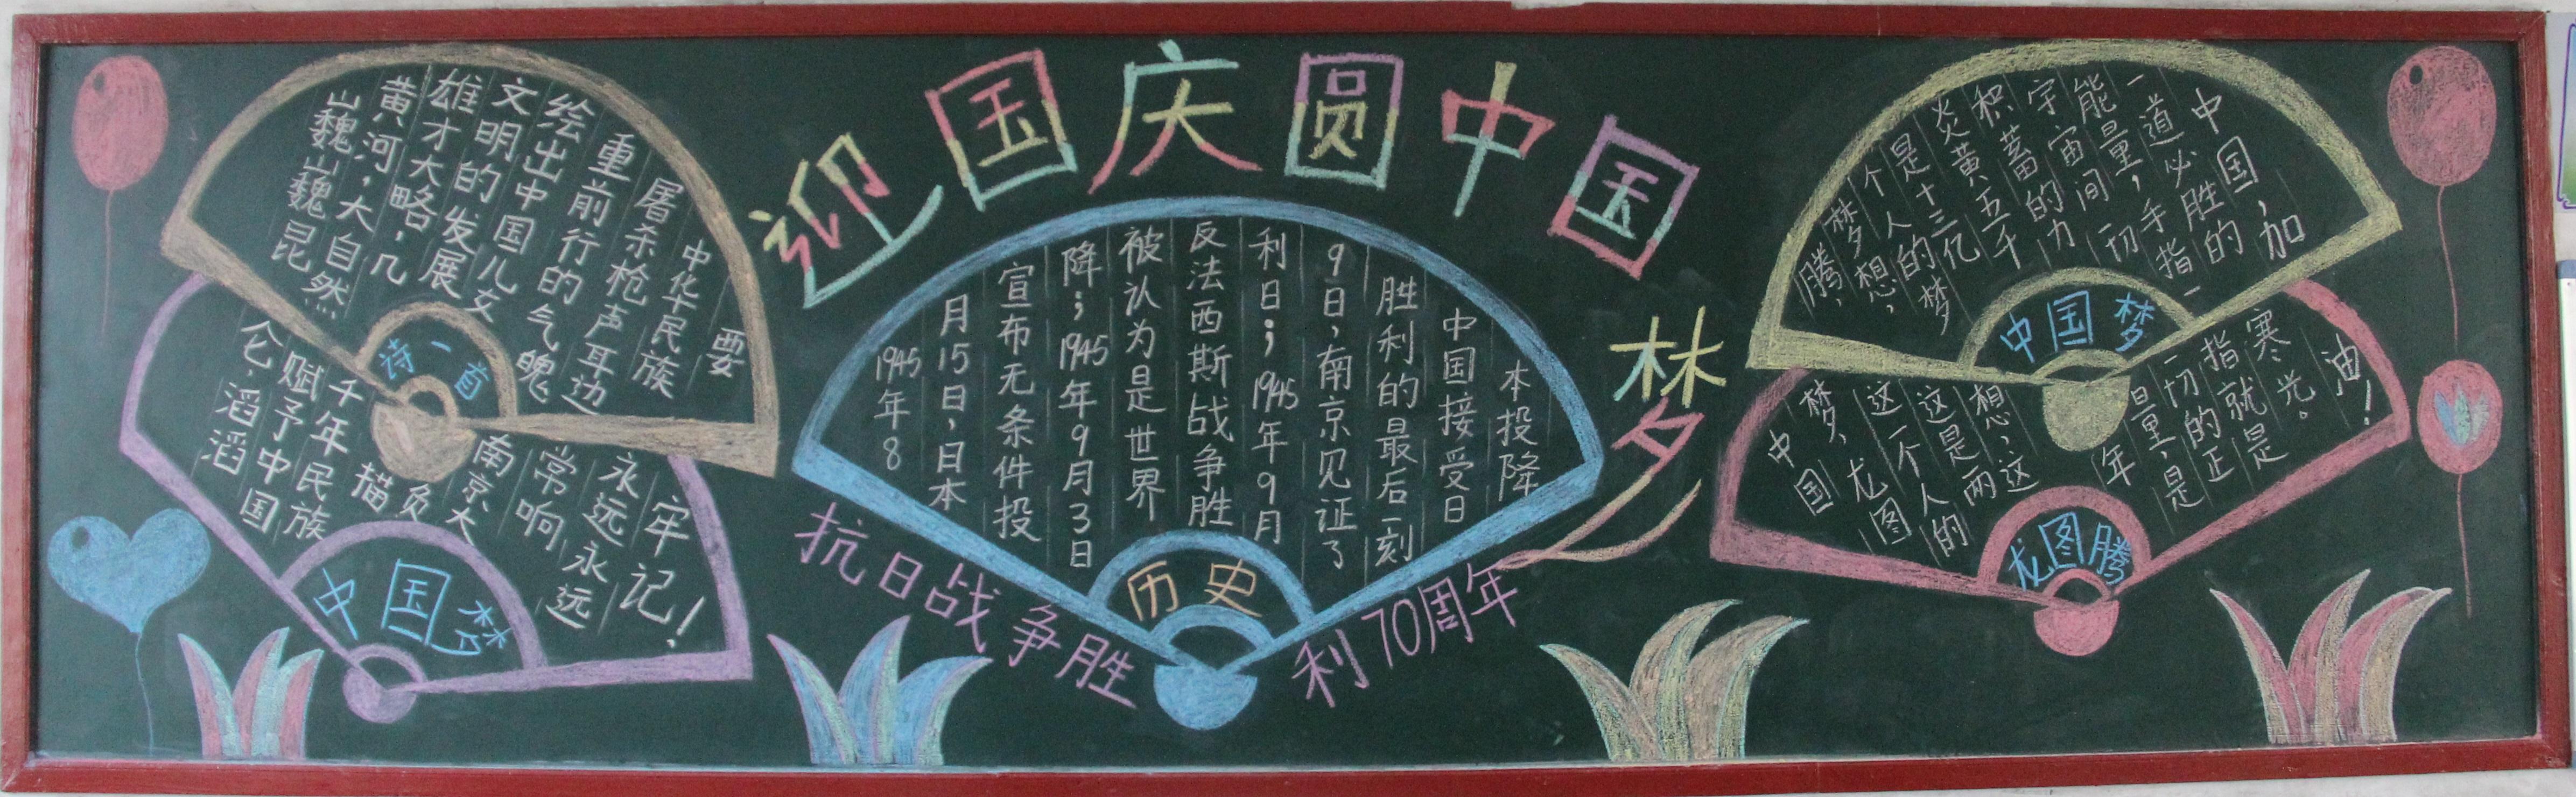 迎国庆圆中国梦
诗一首
中国梦
巍巍昆
仑,滔滔
黄河,大自然
赋予中国
雄才大略,几
千年民族
文明的发展
描
绘出中国儿女
负
重前行的气魄
南京大
屠杀枪声耳边
常响
中华民族
永远永远
要
牢记!
历史
1945年8
月15日,日本
宣布无条件投
降;1945年9月3日
被认为是世界
反法西斯战争胜
利日;1945年9月
9日,南京见证了
胜利的最后刻
中国接受日
本投降
抗日战争胜利70周年
中国梦
龙图腾
中国
梦、龙图
腾,
这一个人的
梦想,
这是两
个人的梦
想,这
是十三亿
炎黄五千
年
积蓄的力
量,是
宇宙间一切
一切的正
能量,手指一
指就是
一道必胜的
寒光。
中国,加
油!